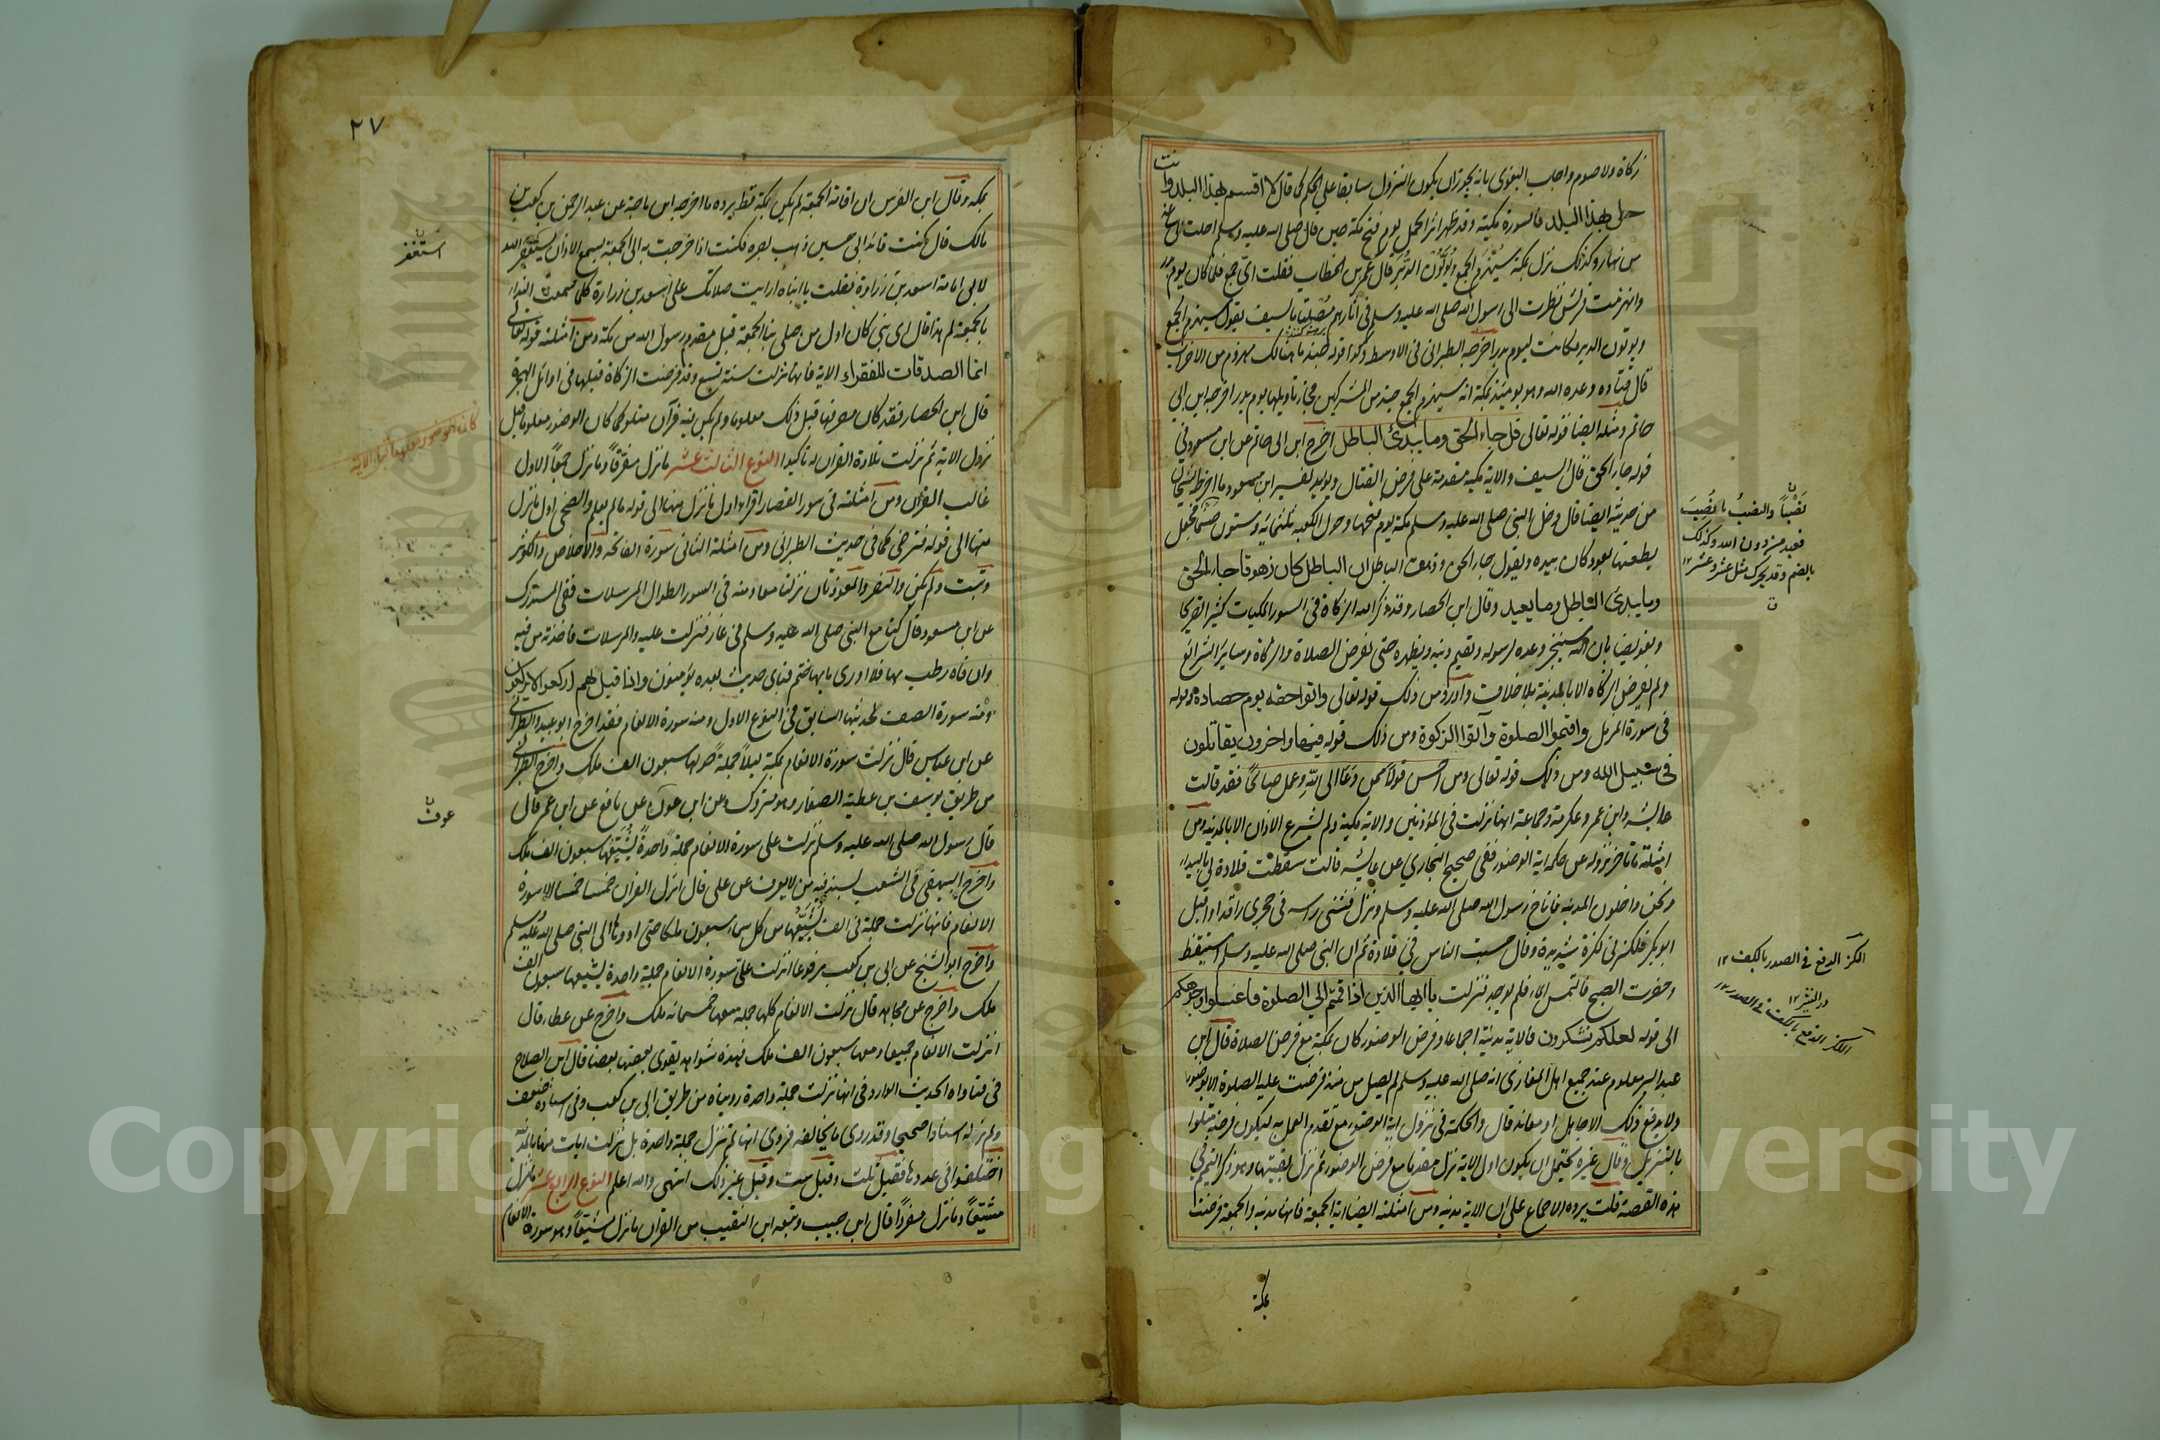 زكاة ولا صوم واجاب البغوى بانه يجوز ان يكون النزول سابقا على الحكم كما قال لا اقسم بهذا البلد وانت
حل بهذا البلد فالسورة مكية وقد ظهر اثر الحل يوم فتح مكة حين قال صلى الله عليه وسلم احلت لى ساعة
من نهار وكذلك نزل بمكة سيهزم الجمع ويولون الدبر قال عمر بن الخطاب فقلت اى جمع فلما كان يوم بدر
وانهزمت قريش نظرت الى رسول الله صلى الله عليه وسلم فى اثارهم مصلتا بالسيف يقول سيهزم الجمع
ويولون الدبر فكانت ليوم بدر اخرجه الطبرانى فى الاوسط وكذا قوله جند ما هنالك مهزوم من الاحزاب
قال قتادة وعده الله وهو يومئذ بمكة انه سيهزم الجمع جند من المشركين فجاء تاويلها يوم بدر اخرجه ابن ابى
حاتم ومثله ايضا قوله تعالى قل جاء الحق وما يبدئ الباطل اخرج ابن ابى حاتم عن ابن مسعود فى
قوله جاء الحق قال السيف والاية مكية متقدمة على فرض القتال ويؤيد تفسير ابن مسعود ما اخرجه الشيخان
من حديثه ايضا قال دخل النبى صلى الله عليه وسلم مكة يوم فتحها وحول الكعبة ثلثمائة وستون صنما فجعل
يطعنها بعود كان بيده ويقول جاء الحق وزهق الباطل ان الباطل كان زهوقا جاء الحق
وما يبدئ الباطل وما يعيد وقال ابن الحصار وقد ذكر الله الزكاة فى السور المكيات كثيرا تصريحا
وتعريضا بان الله سينجز وعده لرسوله ويقيم دينه ويظهره حتى تفرض الصلاة والزكاة وسائر الشرائع
ولم تفرض الزكاة الا بالمدينة بلا خلاف واورد من ذلك قوله تعالى واتوا حقه يوم حصاده وقوله
فى سورة المزمل واقيموا الصلوة وآتوا الزكوة ومن ذلك قوله فيها واخرون يقاتلون
فى سبيل الله ومن ذلك قوله تعالى ومن احسن قولا ممن دعا الى الله وعمل صالحا فقد قالت
عائشة وابن عمر وعكرمة وجماعة انها نزلت فى المؤذنين والاية مكية ولم يشرع الاذان الا بالمدينة ومن
امثلة ما تاخر نزوله عن حكمه اية الوضوء ففى صحيح البخاري عن عائشة قالت سقطت قلادة لى بالبيداء
ونحن داخلون المدينة فاناخ رسول الله صلى الله عليه وسلم ونزل فثنى راسه فى حجرى راقدا واقبل
ابو بكر فلكزنى لكزة شديدة وقال حبست الناس في قلادة ثم ان النبى صلى الله عليه وسلم استيقظ
وحضرت الصبح فالتمس الماء فلم يوجد فنزلت ياايها الذين اذا قمتم الى الصلوة فاغسلوا وجوهكم
الى قوله لعلكم تشكرون فالاية مدنية اجماعا وفرض الوضوء كان بمكة مع فرض الصلاة قال ابن
عبد البر معلوم عند جميع اهل المغازى انه صلى الله عليه وسلم لم يصل منذ فرضت عليه الصلوة الا بوضوء
ولا يدفع ذلك الا جاهل او معاند قال والحكمة فى نزول اية الوضوء مع تقدم العمل به ليكون فرضه متلوا
بالتنزيل وقال غيره يحتمل ان يكون اول الاية نزل مقدما مع فرض الوضوء ثم نزل بقيتها وهو ذكر التيمم فى
هذه القصة قلت يرده الاجماع على ان الاية مدنية ومن امثلته ايضا اية الجمعة فانها مدنية والجمعة فرضت
بمكة
نصبا والنصب ما نصب
فعبد من دون الله وكذلك
بالضم وقد يحرك مثل عسر وعسر ١٢
اللكز الدفع فى الصدر بالكف ١٢
٢٧
بمكة وقال ابن الغرس ان اقامة الجمعة لم يكن بمكة قط يرده ما اخرجه ابن ماجة عن عبد الرحمن بن كعب بن
مالك قال كنت قائد ابى حين ذهب بصره فكنت اذا خرجت به الى الجمعة يسمع الاذان يستغفر الله
لابى امامة اسعد بن زرارة فقلت يا ابتاه ارايت صلاتك على اسعد بن زرارة كلما سمعت النداء
بالجمعة لم هذا قال اى بنى كان اول من صلى بنا الجمعة قبل مقدم رسول الله من مكة ومن امثلته قوله تعالى
انما الصدقات للفقراء الاية فانها نزلت سنة تسع وقد فرضت الزكاة قبلها فى اوائل الهجرة
قال ابن الحصار فقد كان مصرفها قبل ذلك معلوما ولم يكن فيه قرآن متلو كما كان الوضوء معلوما قبل
نزول الاية ثم نزلت تلاوة القران له تاكيدا النوع الثالث عشر ما نزل مفرقا وما نزل جمعا الاول
غالب القران ومن امثلته فى سور القصار اقرا اول ما نزل منها الى قوله ما لم يعلم والضحى اول ما نزل
منها الى قوله فترضى كما فى حديث الطبرانى ومن امثلة الثانى سورة الفاتحة والاخلاص والكوثر
وتبت ولم يكن والنصر والمعوذتان نزلتا معا ومنه فى السور الطوال المرسلات ففى المستدرك
عن ابن مسعود قال كنا مع النبى صلى الله عليه وسلم فى غار فنزلت عليه والمرسلات فاخذتها من فيه
وان فاه رطب بها فلا ادرى بايها ختم فباى حديث بعده يؤمنون واذا قيل لهم اركعوا لا يركعون
ومنه سورة الصف لحديثها السابق فى النوع الاول ومنه سورة الانعام فقد اخرج ابو عبيد والطبرانى
عن ابن عباس قال نزلت سورة الانعام بمكة ليلا جملة حولها سبعون الف ملك واخرج الطبرانى
من طريق يوسف بن عطية الصفار وهو متروك عن ابن عون عن نافع عن ابن عمر قال
قال رسول الله صلى الله عليه وسلم نزلت على سورة الانعام جملة واحدة يشيعها سبعون الف ملك
واخرج البيهقى فى الشعب بسند فيه من لا يعرف عن على قال انزل القران خمسا خمسا الا سورة
الانعام فانها نزلت جملة فى الف يشيعها من كل سماء سبعون ملكا حتى ادوها الى النبى صلى الله عليه وسلم
واخرج ابو الشيخ عن ابى بن كعب مرفوعا انزلت على سورة الانعام جملة واحدة يشيعها سبعون الف
ملك واخرج عن مجاهد قال نزلت الانعام كلها جملة معها خمسمائة ملك واخرج عن عطاء قال
انزلت الانعام جميعا ومعها سبعون الف ملك فهذه شواهد يقوى بعضها بعضا قال ابن الصلاح
فى فتاواه الحديث الوارد فى انها نزلت جملة واحدة رويناه من طريق ابى بن كعب وفى اسناده ضعف
ولم نر له اسنادا صحيحا وقد روى ما يخالفه فروى انها لم تنزل جملة واحدة بل نزلت ايات منها بالمدينة
اختلفوا فى عددها فقيل ثلث وقيل ست وقيل غير ذلك انتهى والله اعلم النوع الرابع عشر ما نزل
مشيعا وما نزل مفردا قال ابن حبيب وتبعه ابن النقيب من القران ما نزل مشيعا وهو سورة الانعام
استغفر
عوف
Copyright © King Saud University